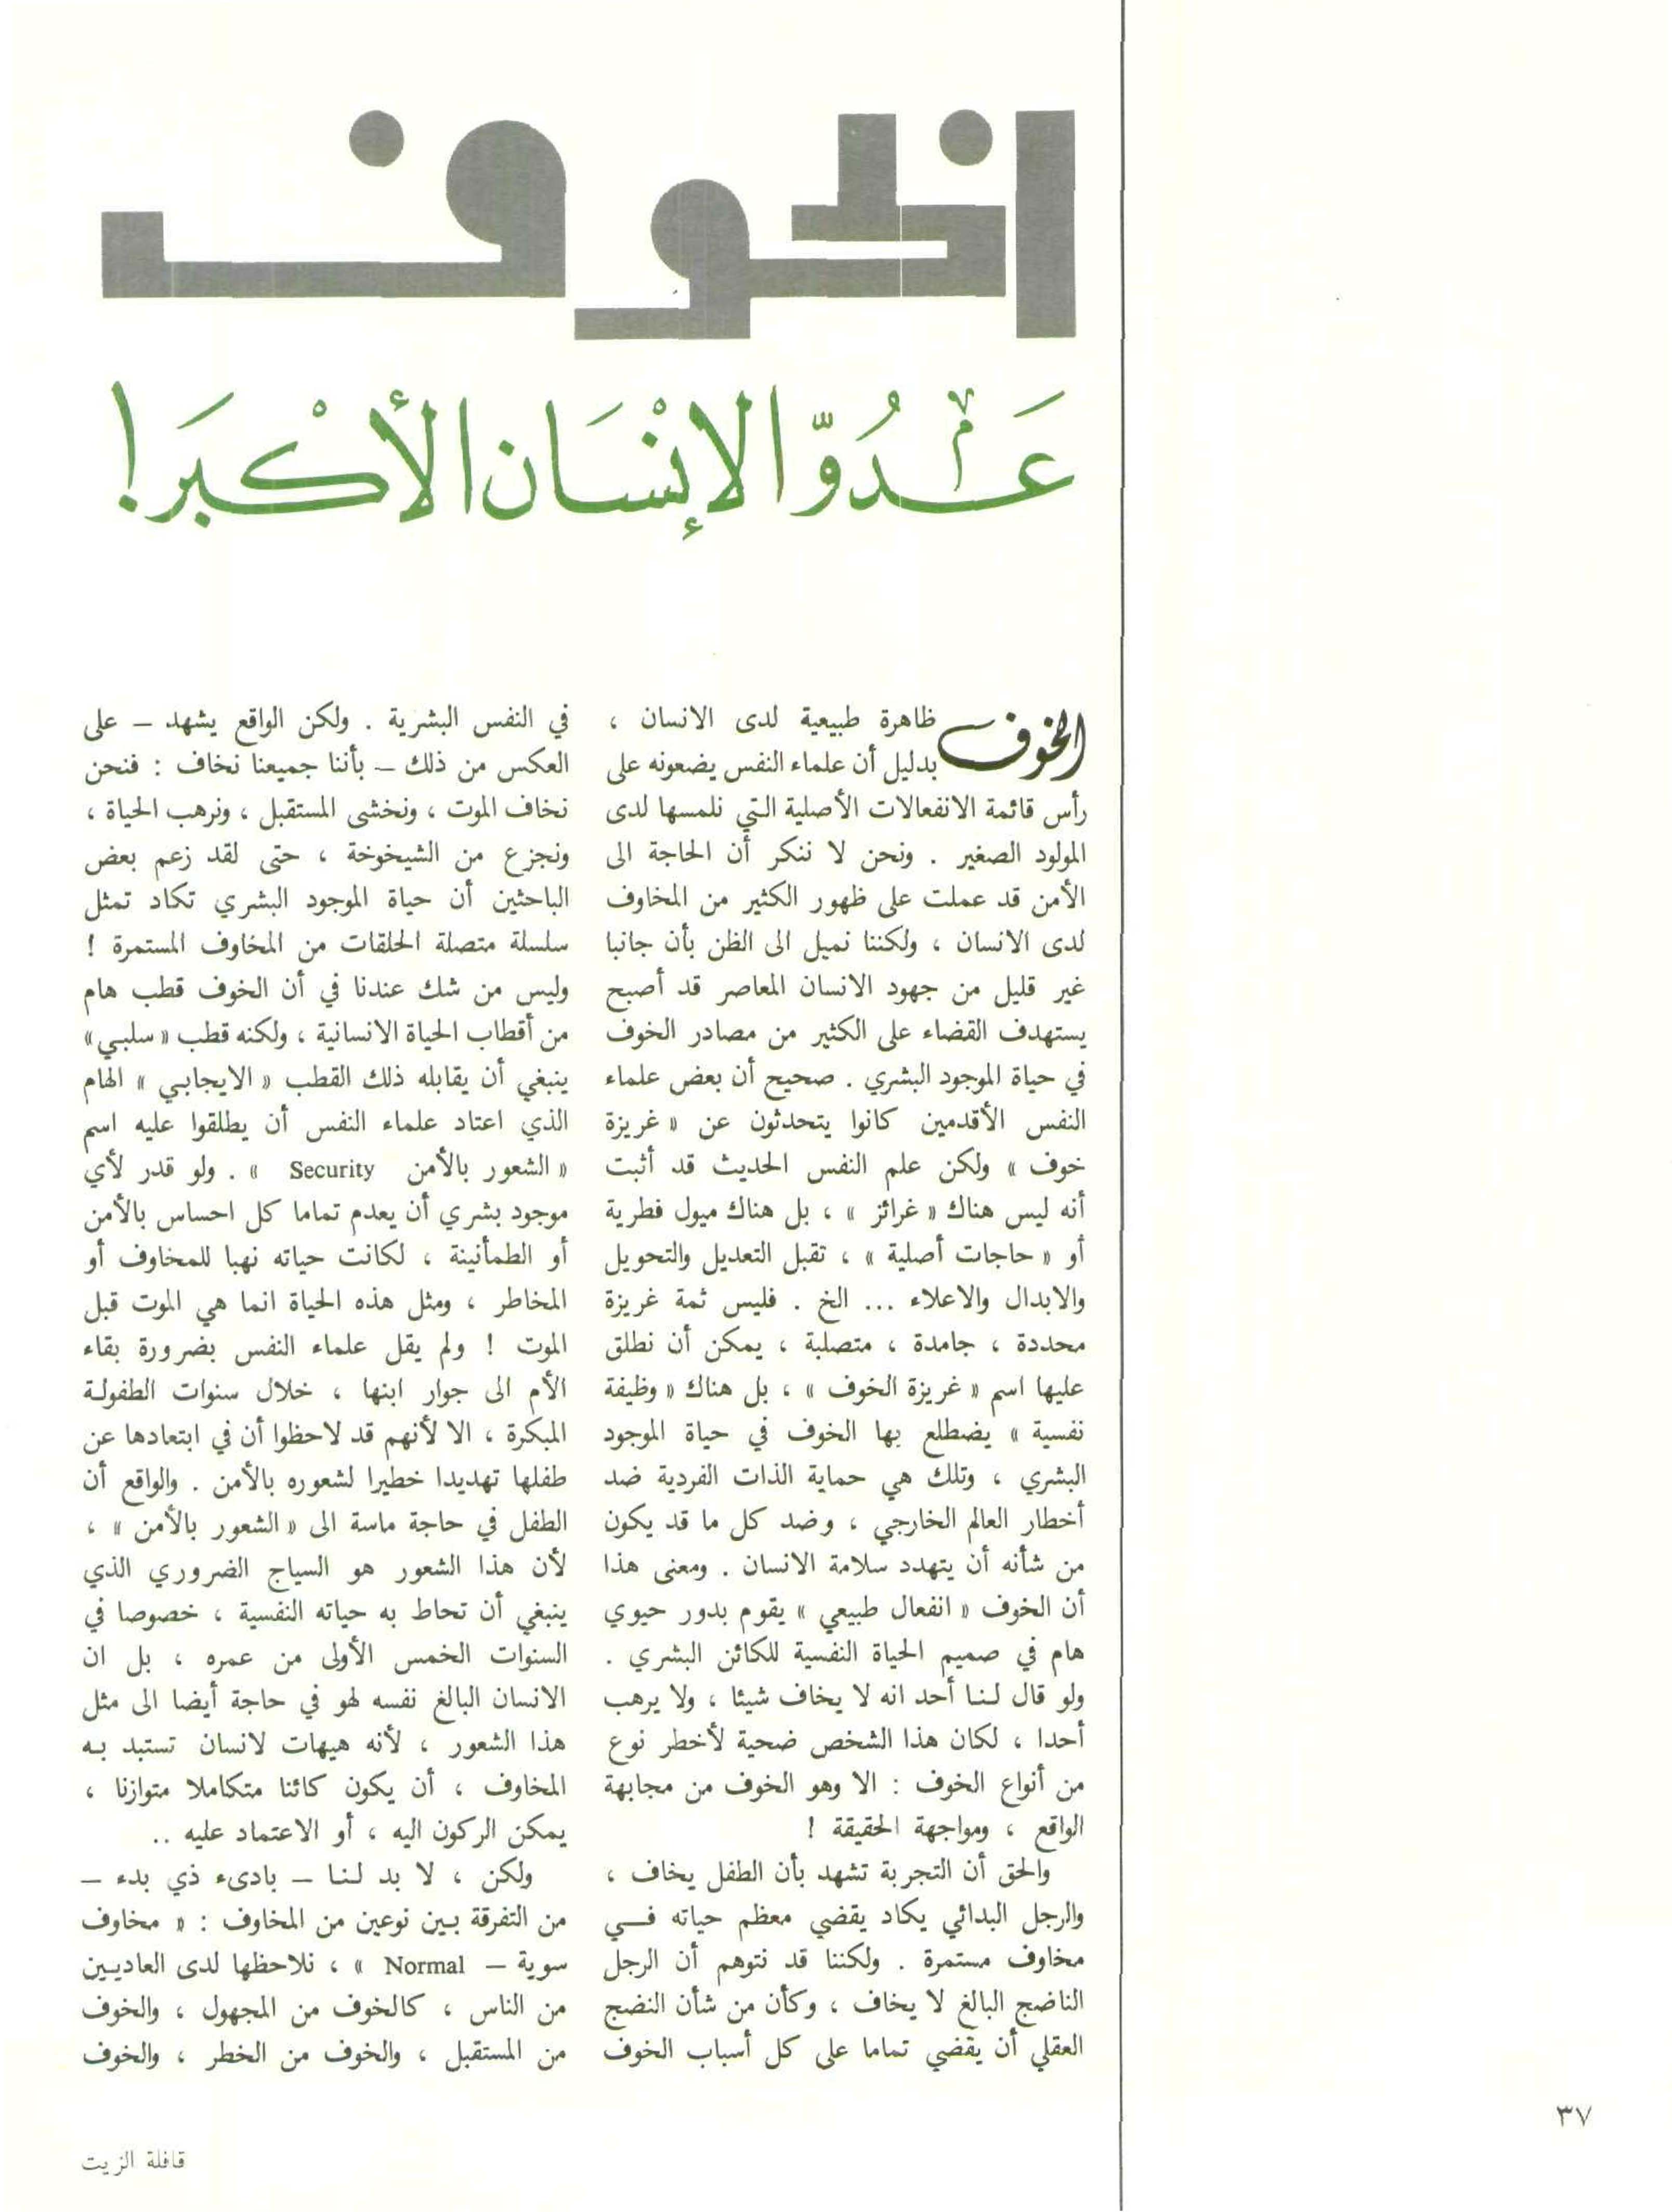 الخوف
عَدُوّ الإنْسَان الأكْبَر!
الخوف ظاهرة طبيعية لدى الانسان ،
بدليل أن علماء النفس يضعونه على
رأس قائمة الانفعالات الأصلية التي نلمسها لدى
المولود الصغير . ونحن لا ننكر أن الحاجة الى
الأمن قد عملت على ظهور الكثير من المخاوف
لدى الانسان ، ولكننا نميل الى الظن بأن جانبا
غير قليل من جهود الانسان المعاصر قد أصبح
يستهدف القضاء على الكثير من مصادر الخوف
في حياة الموجود البشري . صحيح أن بعض علماء
النفس الأقدمين كانوا يتحدثون عن « غريزة
خوف » ولكن علم النفس الحديث قد أثبت
أنه ليس هناك « غرائز » ، بل هناك ميول فطرية
أو « حاجات أصلية » ، تقبل التعديل والتحويل
والابدال والاعلاء ... الخ . فليس ثمة غريزة
محددة ، جامدة ، متصلبة ، يمكن أن نطلق
عليها اسم « غريزة الخوف » ، بل هناك « وظيفة
نفسية » يضطلع بها الخوف في حياة الموجود
البشري ، وتلك هي حماية الذات الفردية ضد
أخطار العالم الخارجي ، وضد كل ما قد يكون
من شأنه أن يتهدد سلامة الانسان . ومعنى هذا
أن الخوف « انفعال طبيعي » يقوم بدور حيوي
هام في صميم الحياة النفسية للكائن البشري .
ولو قال لنا أحد انه لا يخاف شيئا ، ولا يرهب
أحدا ، لكان هذا الشخص ضحية لأخطر نوع
من أنواع الخوف : الا وهو الخوف من مجابهة
الواقع ، ومواجهة الحقيقة !
والحق أن التجربة تشهد بأن الطفل يخاف ،
والرجل البدائي يكاد يقضي معظم حياته فـــي
مخاوف مستمرة . ولكننا قد نتوهم أن الرجل
الناضج البالغ لا يخاف ، وكأن من شأن النضج
العقلي أن يقضي تماما على كل أسباب الخوف
في النفس البشرية . ولكن الواقع يشهد – على
العكس من ذلك – بأننا جميعنا نخاف : فنحن
نخاف الموت ، ونخشى المستقبل ، ونرهب الحياة ،
ونجزع من الشيخوخة ، حتى لقد زعم بعض
الباحثين أن حياة الموجود البشري تكاد تمثل
سلسلة متصلة الحلقات من المخاوف المستمرة !
وليس من شك عندنا في أن الخوف قطب هام
من أقطاب الحياة الانسانية ، ولكنه قطب « سلبي »
ينبغي أن يقابله ذلك القطب « الايجابي » الهام
الذي اعتاد علماء النفس أن يطلقوا عليه اسم
« الشعور بالأمن Security » . ولو قدر لأي
موجود بشري أن يعدم تماما كل احساس بالأمن
أو الطمأنينة ، لكانت حياته نهبا للمخاوف أو
المخاطر ، ومثل هذه الحياة انما هي الموت قبل
الموت ! ولم يقل علماء النفس بضرورة بقاء
الأم الى جوار ابنها ، خلال سنوات الطفولة
المبكرة ، الا لأنهم قد لاحظوا أن في ابتعادها عن
طفلها تهديدا خطيرا لشعوره بالأمن . والواقع أن
الطفل في حاجة ماسة الى « الشعور بالأمن » ،
لأن هذا الشعور هو السياج الضروري الذي
ينبغي أن تحاط به حياته النفسية ، خصوصا في
السنوات الخمس الأولى من عمره ، بل ان
الانسان البالغ نفسه لهو في حاجة أيضا الى مثل
هذا الشعور ، لأنه هيهات لانسان تستبد به
المخاوف ، أن يكون كائنا متكاملا متوازنا ،
يمكن الركون اليه ، أو الاعتماد عليه ..
ولكن ، لا بد لنا – بادىء ذي بدء –
من التفرقة بين نوعين من المخاوف : « مخاوف
سوية – Normal » ، نلاحظها لدى العاديين
من الناس ، كالخوف من المجهول ، والخوف
من المستقبل ، والخوف من الخطر ، والخوف
٣٧
قافلة الزيت